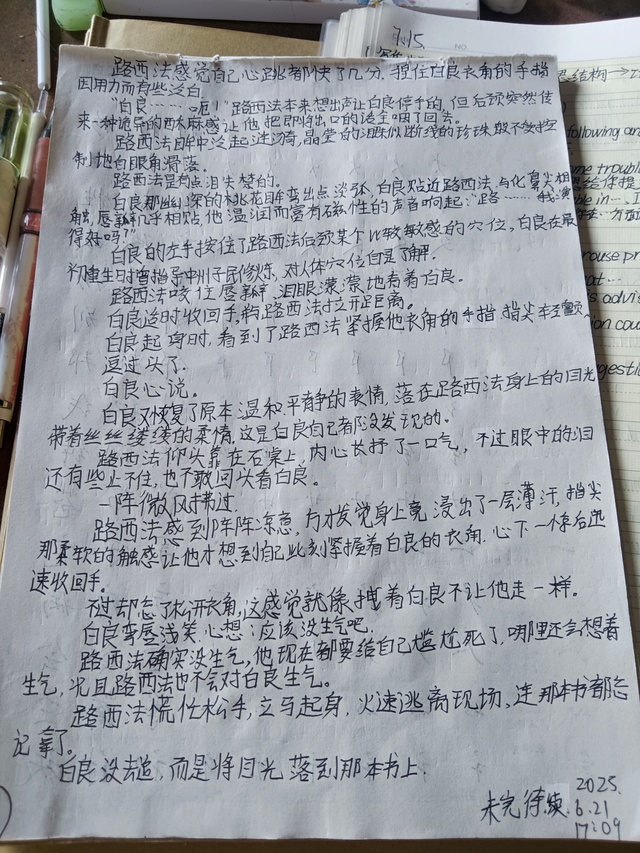 7.15.
路西法感觉自己心跳都快了几分，捏住白良衣角的手指
因用力而有些泛白。
“白良……呃！”路西法本来想出声让白良停手的，但后颈突然传
来一种诡异的酥麻感让他把即将出口的话全咽了回去。
路西法眸中泛起涟漪，晶莹的泪珠似断线的珍珠般不受控
制地自眼角滑落。
路西法是有点泪失禁的。
白良那幽深的桃花眸弯出点淡弧，白良贴近路西法，与他鼻尖相
触，唇瓣几乎相贴，他温润而富有磁性的声音响起：“路……我演
得好吗？”
白良的左手按住了路西法后颈某个比较敏感的穴位，白良在最
初重生时曾指导中州子民修炼，对人体穴位自是了解。
路西法咬住唇瓣，泪眼濛濛地看着白良。
白良适时收回手，与路西法拉开距离。
白良起身时，看到了路西法紧握他衣角的手指，指尖轻颤
逗过头了.
白良心说。
白良又恢复了原本温和平静的表情，落在路西法身上的目光
带着丝丝缕缕的柔情，这是白良自己都没发现的。
路西法仰头靠在石桌上，内心长抒了一口气，不过眼中的泪
还有些止不住，也不敢回头看白良。
一阵微风拂过.
路西法感到阵阵凉意，方才发觉身上竟浸出了一层薄汗，指尖
那柔软的触感让他才想到自己此刻紧握着白良的衣角，心下一惊后迅
速收回手。
不过却忘了松开衣角，这感觉就像拽着白良不让他走一样。
白良弯唇浅笑，心想：应该没生气吧.
路西法确实没生气，他现在都要给自己尴尬死了，哪里还会想着
生气，况且路西法也不会对白良生气。
路西法慌忙松手，立马起身，火速逃离现场、连那本书都忘
记拿了。
白良没去追，而是将目光落到那本书上.
未完待续.
2025.
6.21
17:09